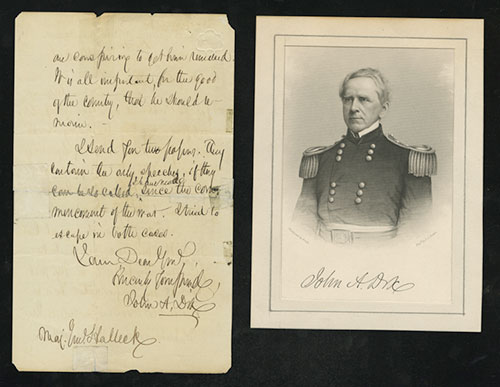 are conspiring to get him removed.
It is all important, for the good
of the country, that he should re-
main. —
I send you two papers. They
contain the only speeches, if they
can be so called, I have made since the com-
mencement of the war. I tried to
escape in both cases.
I am, Dear Genl,
Sincerely Your friend,
John A. Dix
Maj. Genl. Halleck
John A. Dix